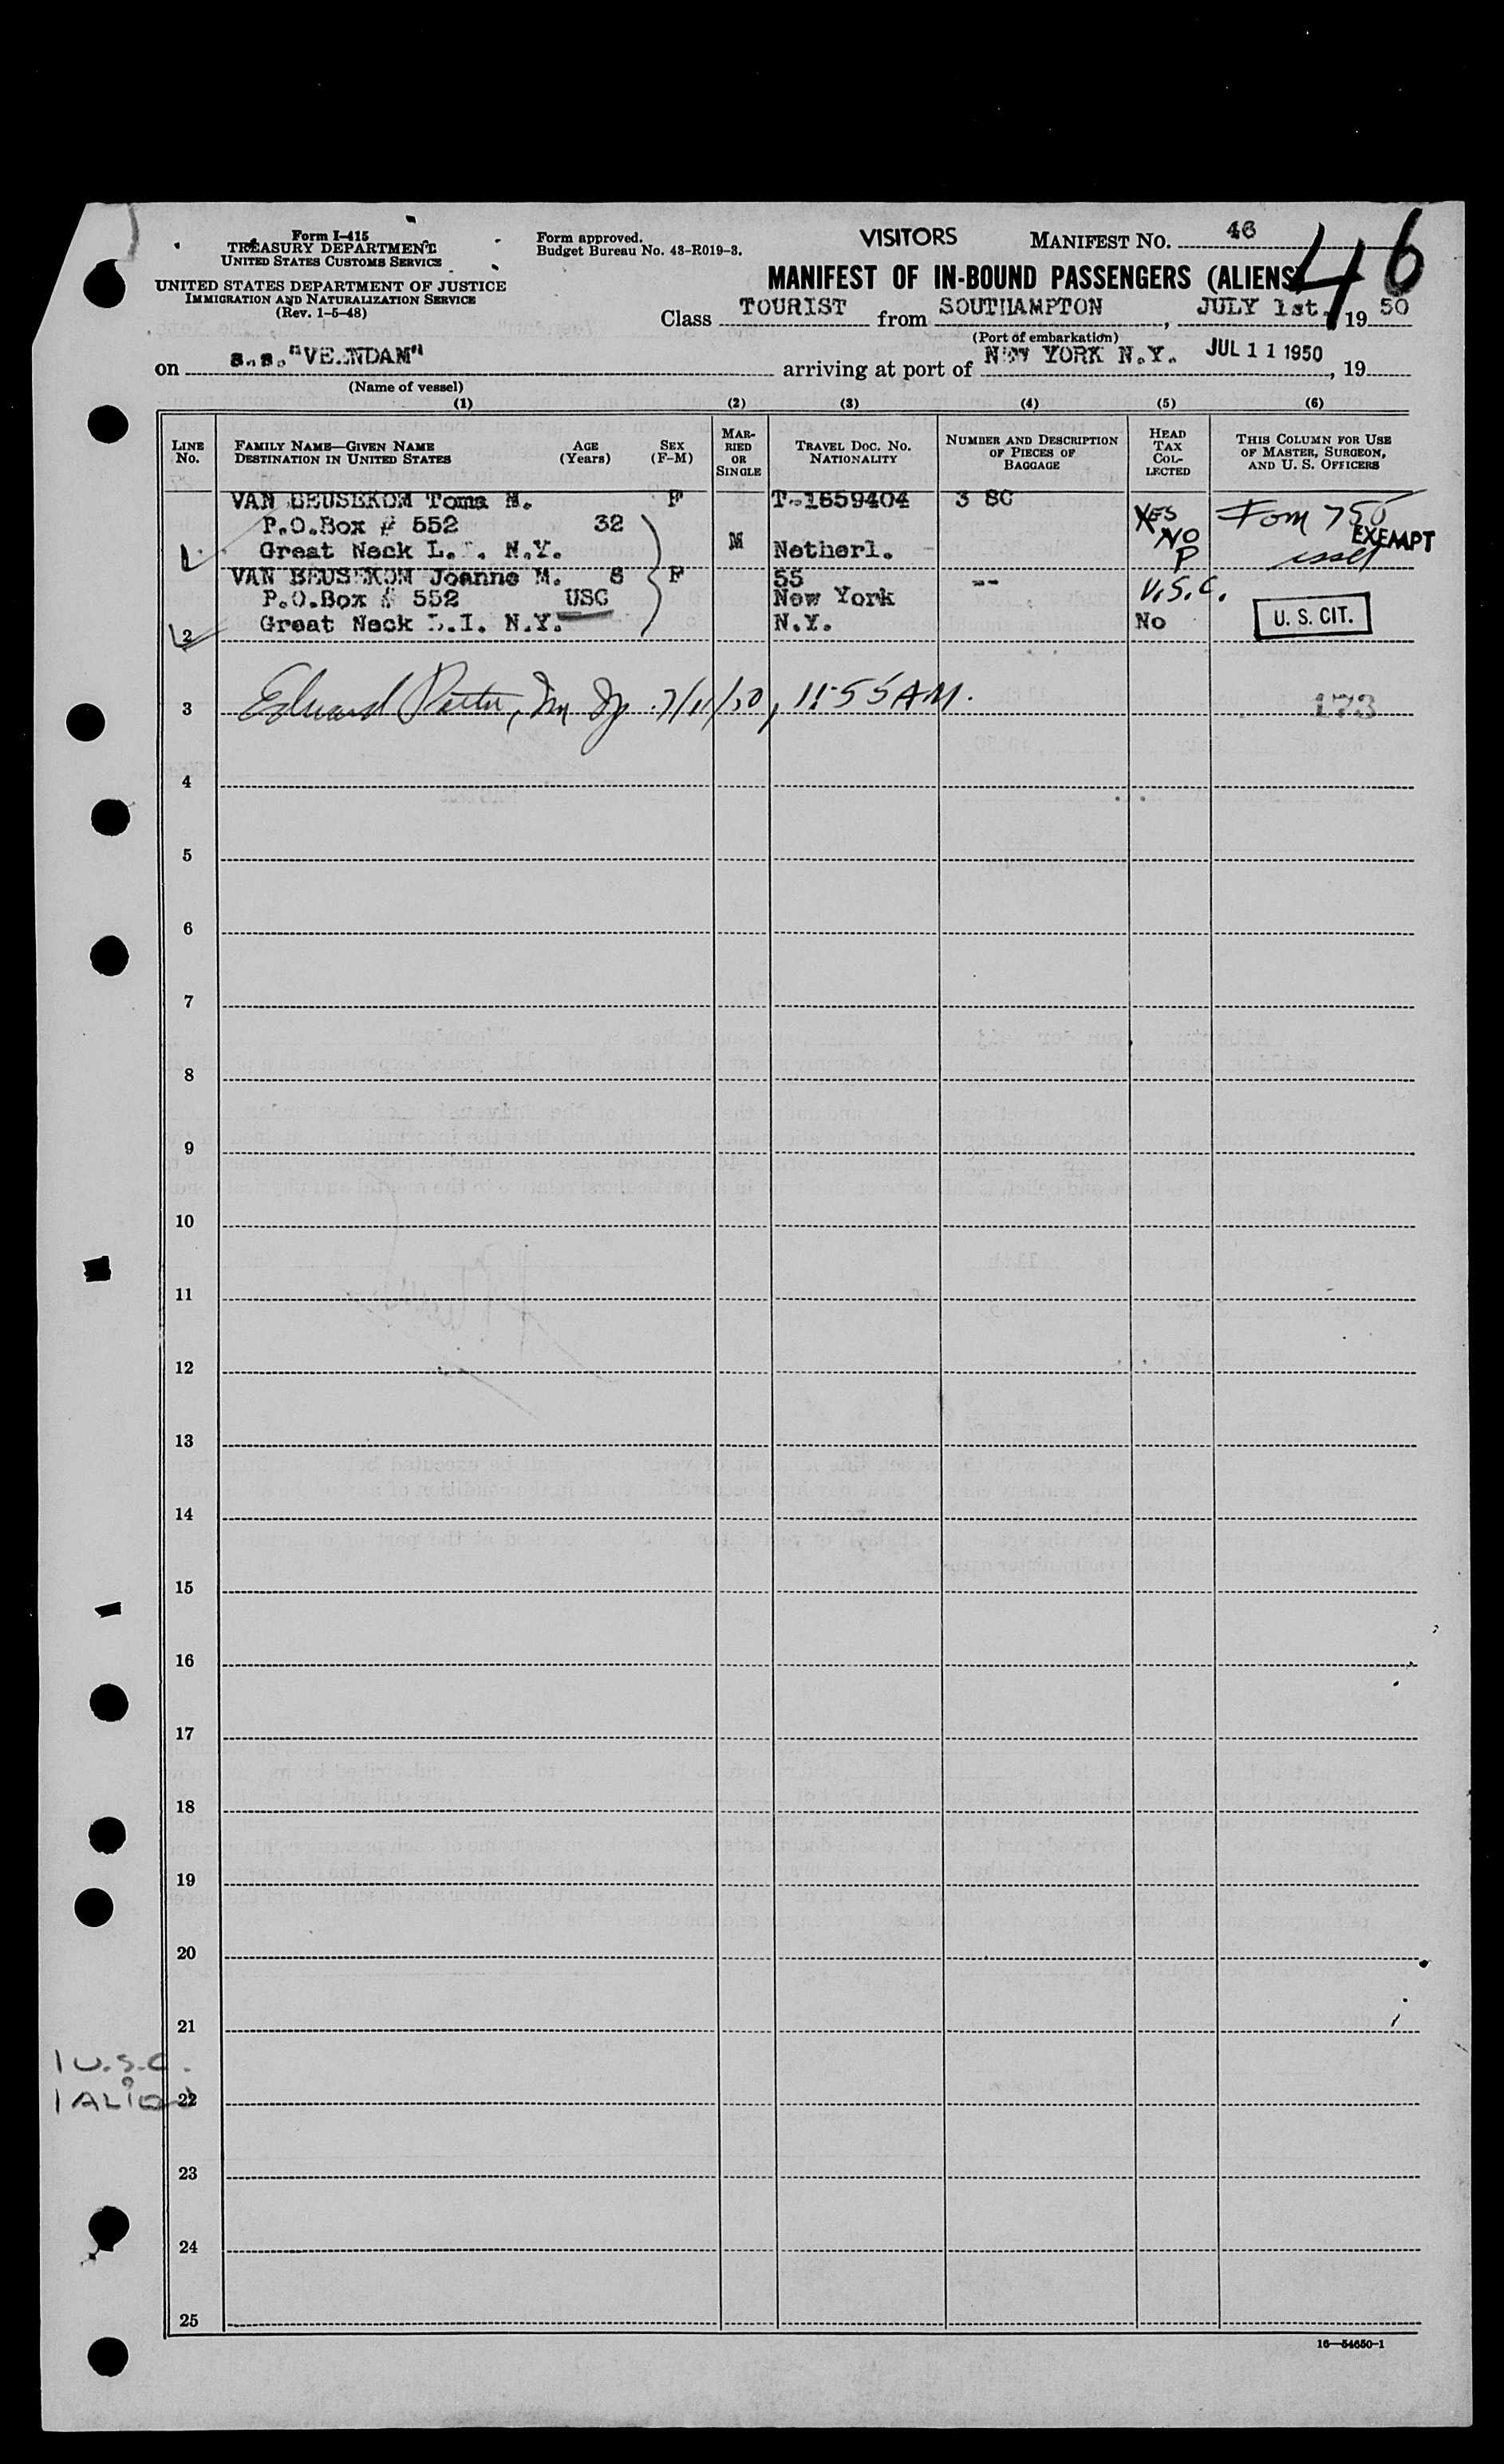 Form I-415
TREASURY DEPARTMENT
UNITED STATES CUSTOMS SERVICE
UNITED STATES DEPARTMENT OF JUSTICE
IMMIGRATION AND NATURALIZATION SERVICE
(Rev. 1-5-48)
Form approved.
Budget Bureau No. 43-R019-3.
VISITORS
MANIFEST NO. 46
46
MANIFEST OF IN-BOUND PASSENGERS (ALIENS)
Class TOURIST from SOUTHAMPTON, JULY 1st, 19 50
(Port of embarkation)
on s.s."VEENDAM" arriving at port of NEW YORK N.Y. JUL 11 1950, 19
(Name of vessel)
(1) (2) (3) (4) (5) (6)
LINE No. FAMILY NAME—GIVEN NAME DESTINATION IN UNITED STATES AGE (Years) SEX (F-M) MARRIED OR SINGLE TRAVEL DOC. NO. NATIONALITY NUMBER AND DESCRIPTION OF PIECES OF BAGGAGE HEAD TAX COLLECTED THIS COLUMN FOR USE OF MASTER, SURGEON, AND U. S. OFFICERS
VAN BEUSEKOM Toma M. F T-1659404 3 SC
P.O.Box # 552 32 YES Form 750
1 Great Neck L.I. N.Y. M Netherl. NO P EXEMPT
VAN BEUSEKOM Joanne M. 8 F 55 --
P.O.Box # 552 USC New York V.S.C.
2 Great Neck L.I. N.Y. N.Y. No U. S. CIT.
3 Edward 7/11/50, 11:55 AM. 173
4
5
6
7
8
9
10
11
12
13
14
15
16
17
18
19
20
21
1 U.S.C.
1 ALIEN 22
23
24
25
16—54650-1